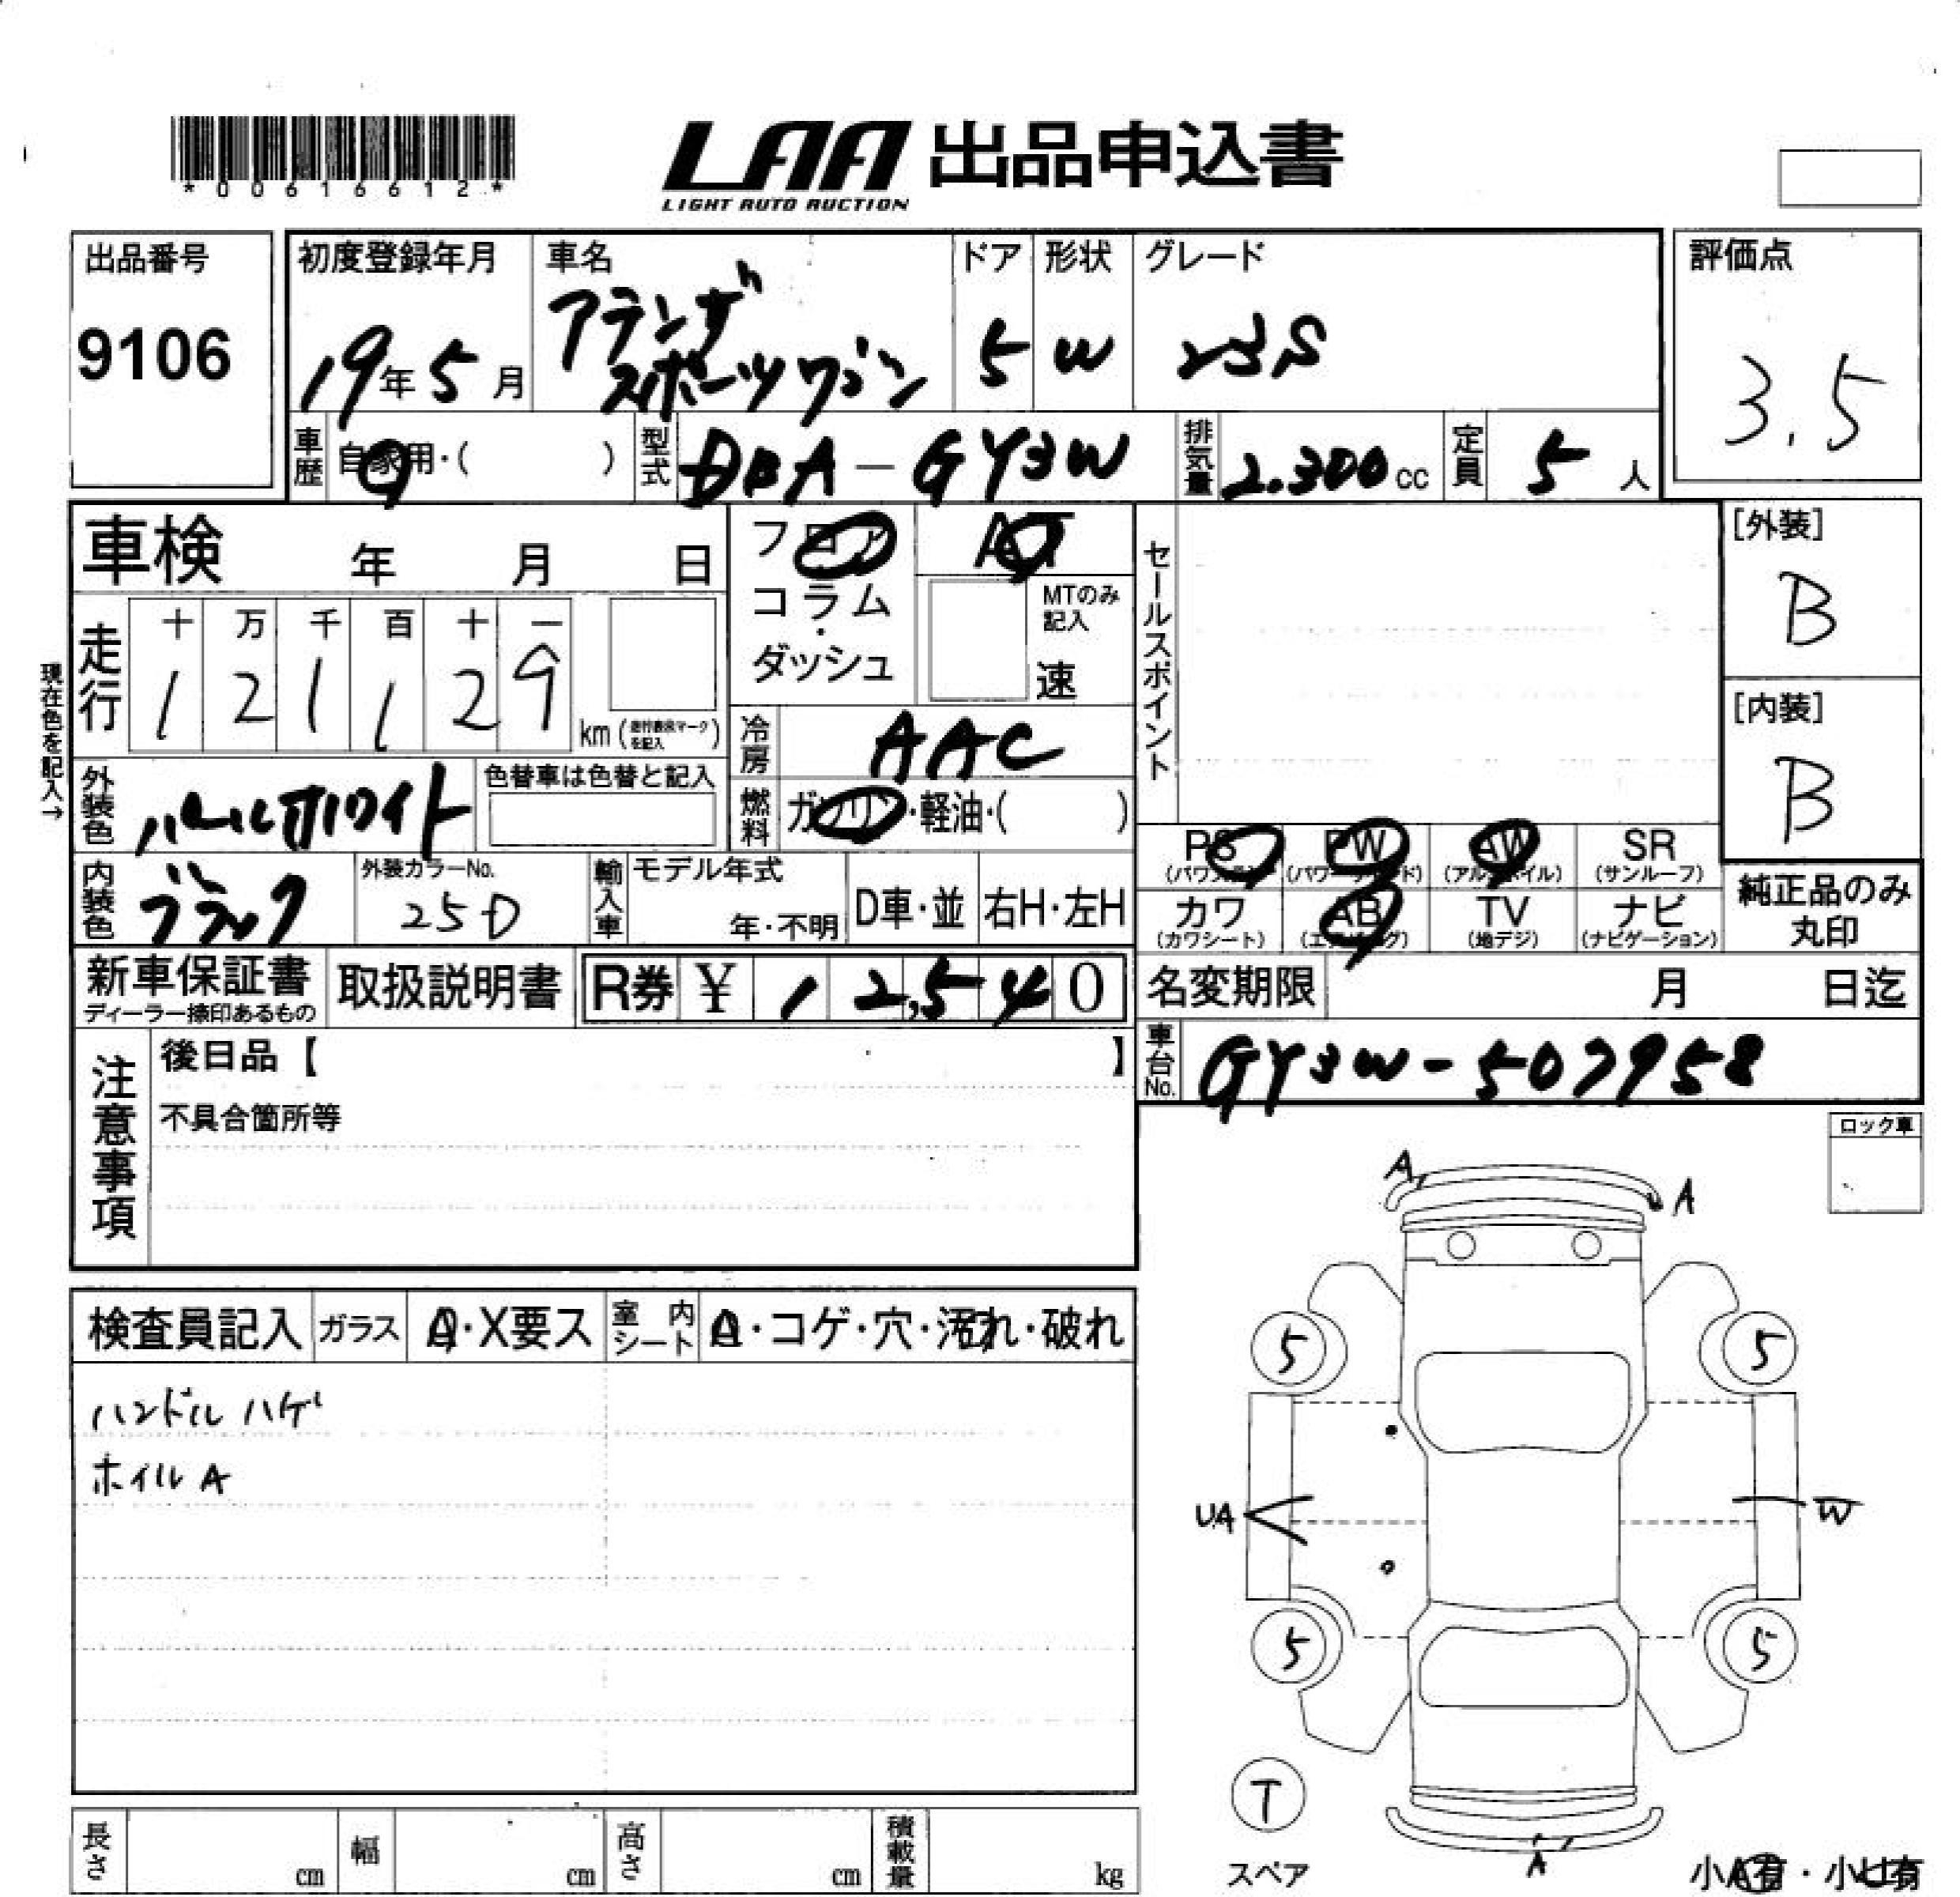 *00616612*
LAA 出品申込書
LIGHT AUTO AUCTION
出品番号
9106
初度登録年月
19年5月
車名
アテンザ
スポーツワゴン
ドア
5
形状
W
グレード
23S
評価点
3.5
車歴
自家用・( )
型式
DBA-GY3W
排気量
2.300cc
定員
5人
車検 年 月 日
フロア
コラム
・
ダッシュ
AT
MTのみ
記入
速
セールスポイント
[外装]
B
[内装]
B
現在色を記入→
走行
十 万 千 百 十 一
1 2 1 1 2 9
km
冷房
AAC
燃料
ガソリン・軽油・( )
外装色
パールホワイト
色替車は色替と記入
内装色
ブラック
外装カラーNo.
25D
輸入車
モデル年式
年・不明
D車・並
右H・左H
PS PW AW SR
(サンルーフ)
カワ AB TV ナビ
(カワシート) (地デジ) (ナビゲーション)
純正品のみ
丸印
新車保証書
ディーラー捺印あるもの
取扱説明書
R券 ¥ 12,540
名変期限 月 日迄
車台No.
GY3W-507958
注意事項
後日品【 】
不具合箇所等
ロック車
A A
検査員記入 ガラス A・X要ス 室内シート A・コゲ・穴・汚れ・破れ
ハンドルハゲ
ホイル A
5 5
UA W
5 5
T
スペア
A
小A有・小U有
長さ cm 幅 cm 高さ cm 積載量 kg